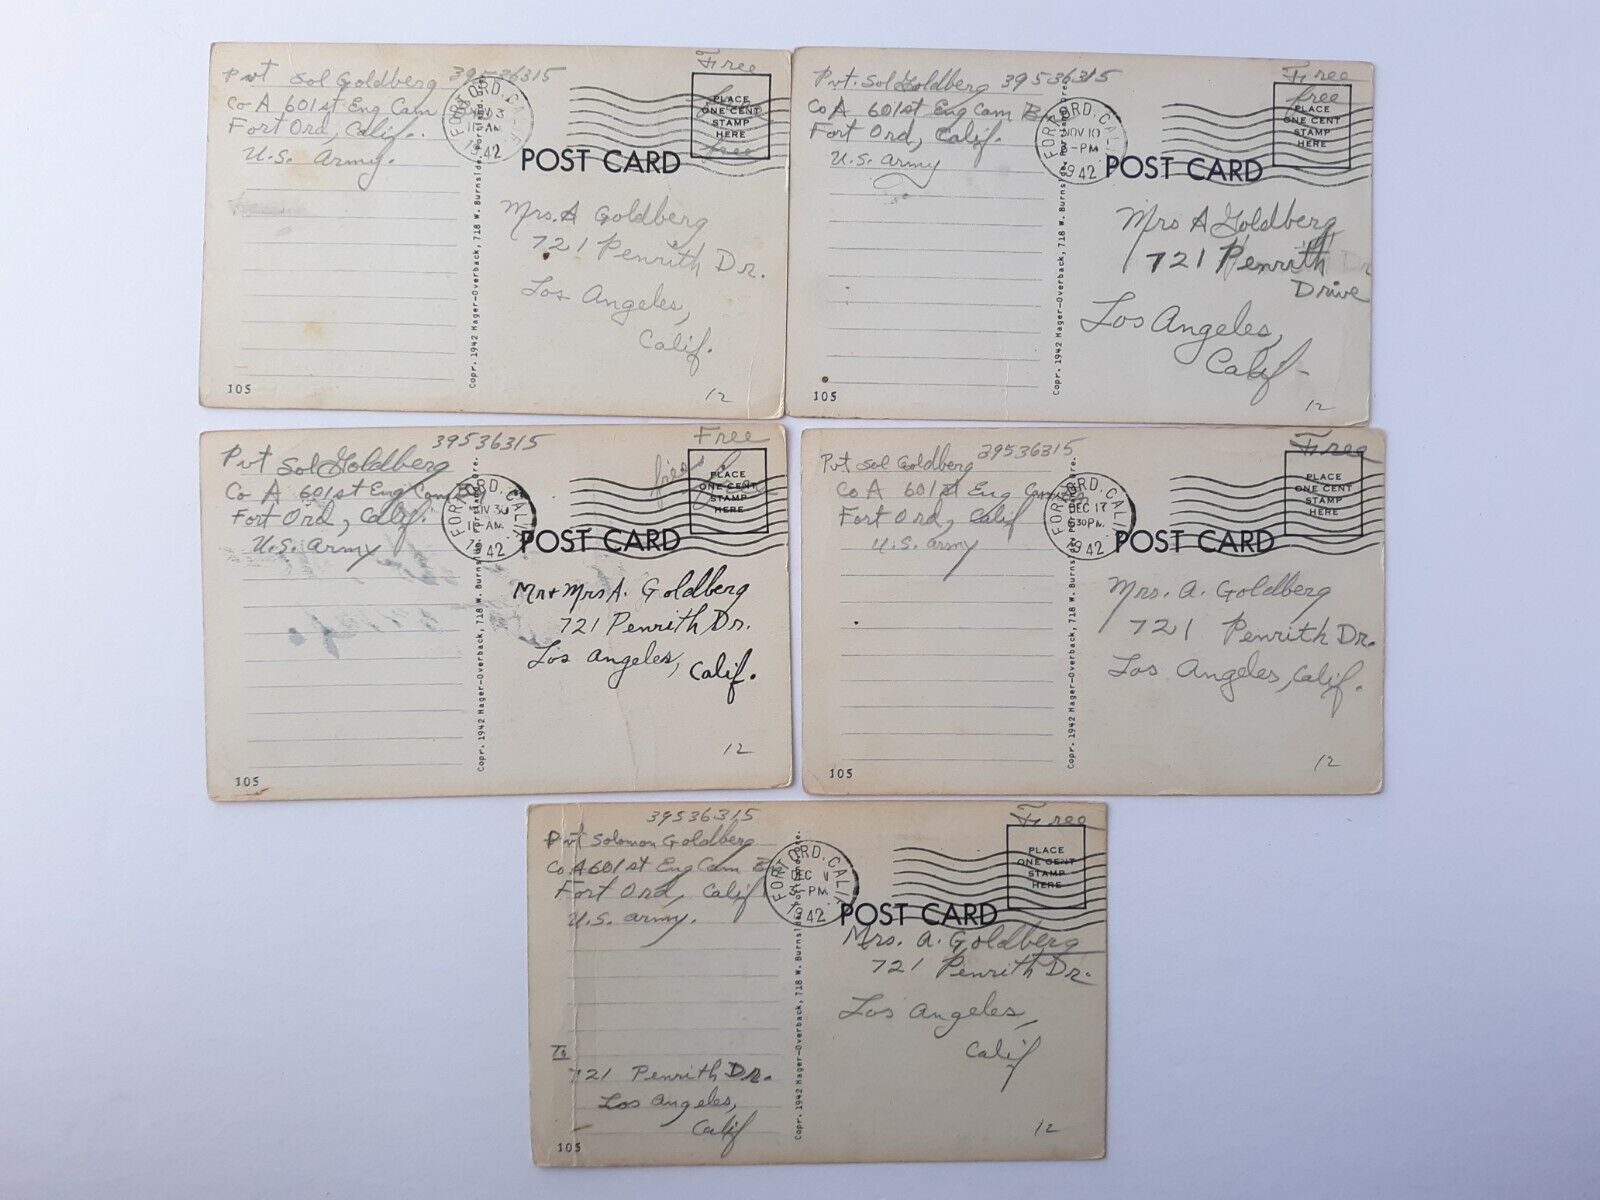 Pvt Sol Goldberg 39536315
Co A 601st Eng Cam
Fort Ord, Calif.
U.S. Army.
Free
free
PLACE
ONE CENT
STAMP
HERE
FORT ORD, CALIF
11 AM
1942
POST CARD
Mrs. A Goldberg
721 Penrith Dr.
Los Angeles,
Calif.
Copr. 1942 Hager-Overback, 718 W. Burnside, Portland, Ore.
105
12
Pvt. Sol Goldberg 39536315
Co A 601st Eng Cam Bn
Fort Ord, Calif.
U.S. Army
Free
free
PLACE
ONE CENT
STAMP
HERE
FORT ORD, CALIF
NOV 10
PM
1942
POST CARD
Mrs A Goldberg
721 Penrith Dr
Drive
Los Angeles,
Calif
Copr. 1942 Hager-Overback, 718 W. Burnside, Portland, Ore.
105
12
39536315
Pvt Sol Goldberg
Co A 601st Eng Cam Bn
Fort Ord, Calif.
U.S. Army
Free
free
PLACE
ONE CENT
STAMP
HERE
FORT ORD, CALIF
NOV 30
11 AM
1942
POST CARD
Mr + Mrs A. Goldberg
721 Penrith Dr.
Los Angeles, Calif.
Copr. 1942 Hager-Overback, 718 W. Burnside, Portland, Ore.
105
12
39536315
Pvt Sol Goldberg
Co A 601st Eng Cam
Fort Ord, Calif
U.S. Army
Free
PLACE
ONE CENT
STAMP
HERE
FORT ORD, CALIF
DEC 17
6 30 PM
1942
POST CARD
Mrs. A. Goldberg
721 Penrith Dr.
Los Angeles, Calif.
Copr. 1942 Hager-Overback, 718 W. Burnside, Portland, Ore.
105
12
39536315
Pvt Solomon Goldberg
Co A 601st Eng Cam Bn
Fort Ord, Calif
U.S. Army.
Free
PLACE
ONE CENT
STAMP
HERE
FORT ORD, CALIF
DEC
PM
1942
POST CARD
Mrs. A. Goldberg
721 Penrith Dr.
Los Angeles,
Calif
To
721 Penrith Dr.
Los Angeles,
Calif
Copr. 1942 Hager-Overback, 718 W. Burnside, Portland, Ore.
105
12